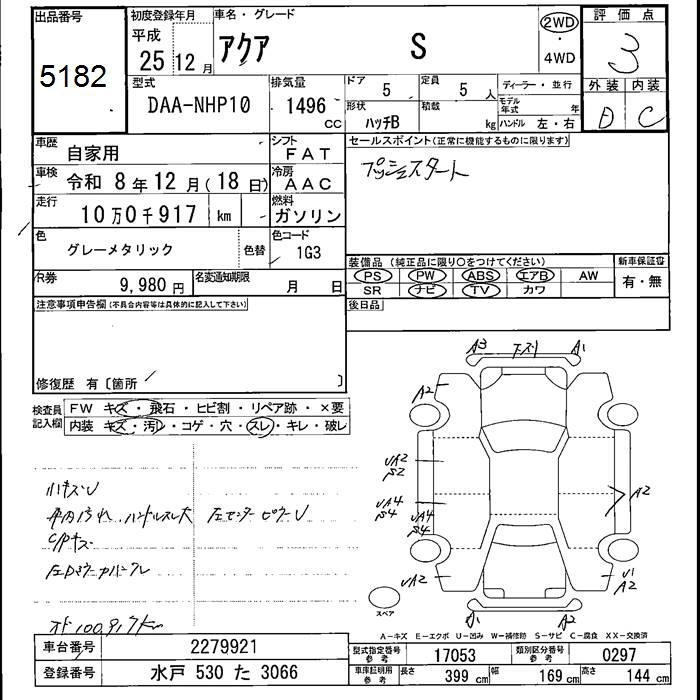 出品番号
5182
初度登録年月
平成
25 12 月
車名・グレード
アクア S
2WD
・
4WD
評価点
3
外装 内装
D C
型式
DAA-NHP10
排気量
1496 cc
ドア 5
定員 5 人
形状 ハッチB
積載 kg
ディーラー・並行
モデル年式 年
ハンドル 左・右
車歴
自家用
シフト
FAT
車検
令和 8 年 12 月 ( 18 日)
冷房
AAC
走行
10 万 0 千 917 km
燃料
ガソリン
色
グレーメタリック
色替
色コード
1G3
R券
9,980 円
名変通知期限
月 日
セールスポイント(正常に機能するものに限ります)
プッシュスタート
装備品 (純正品に限り○をつけてください)
PS PW ABS エアB AW
SR ナビ TV カワ
新車保証書
有・無
後日品
注意事項申告欄(不具合内容等は具体的に記入して下さい)
修復歴 有〔箇所 〕
検査員記入欄
FW キズ・飛石・ヒビ割・リペア跡・×要
内装 キズ・汚レ・コゲ・穴・スレ・キレ・破レ
A3 下スリ A1
A2
UA2
S2
UA4
S4
UA4
S4
A2
UA2
U1
A2
A1 A2
スペア
小キズU
内汚れ、ハンドルスレ大 左センターピラーU
C/Pキズ
オド100,917km
A-キズ E-エクボ U-凹み W-補修跡 S-サビ C-腐食 XX-交換済
車台番号 2279921
登録番号 水戸 530 た 3066
型式指定番号 参考 17053
類別区分番号 参考 0297
車庫証明用 参考 長さ 399 cm 幅 169 cm 高さ 144 cm